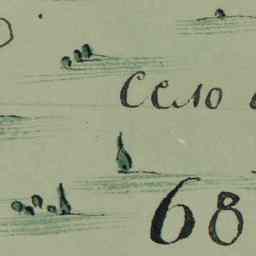 Село
68